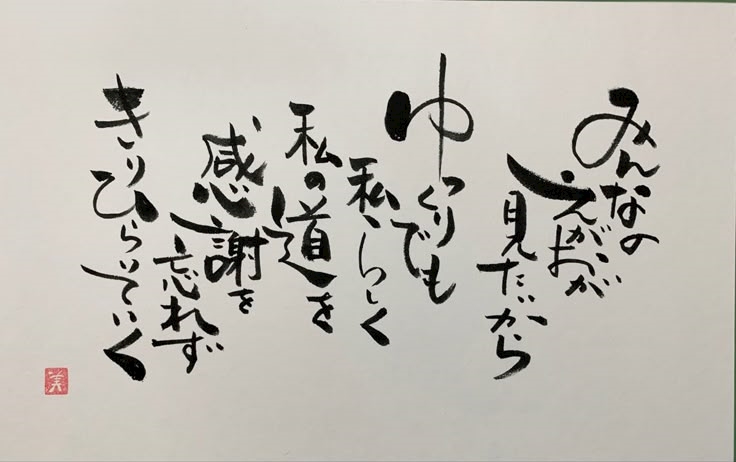 みんなの
えがおが
見たいから
ゆっくりでも
私らしく
私の道を
感謝を
忘れず
きりひらいていく
美